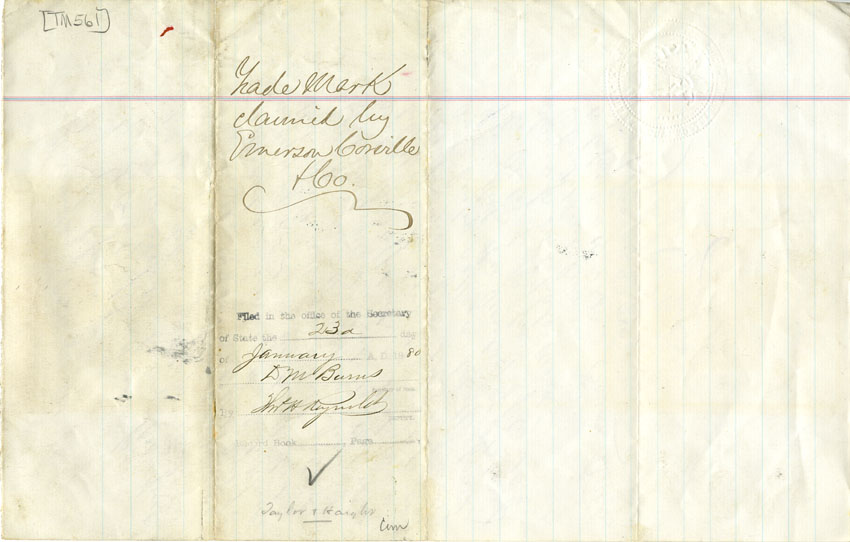 [TM561]
Trade Mark
claimed by
Emerson Corville
& Co.
Filed in the office of the Secretary
of State the 23d day
of January A. D. 18 80
D M Burns
By Thos H Reynolds
Record Book , Page
Taylor & Haight